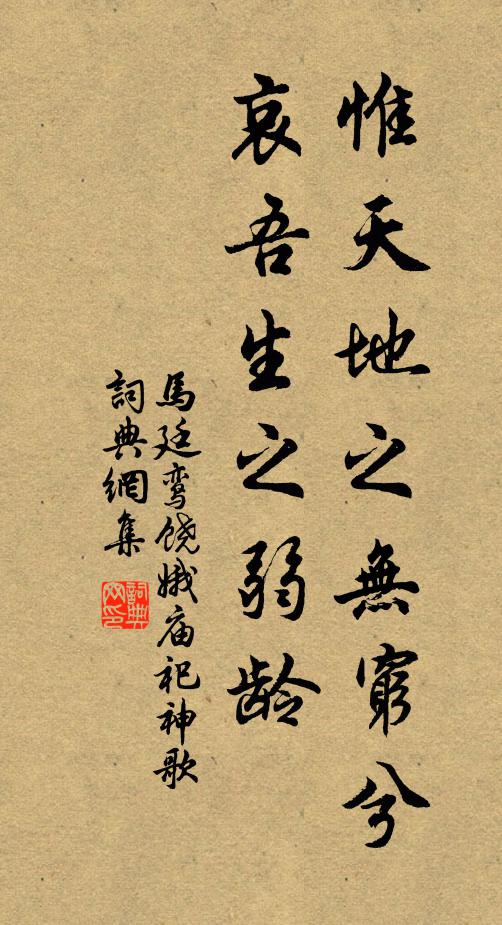 惟天地之無窮兮
哀吾生之弱龄
馬廷鸾饶娥庙祀神歌
詞典網集
詞典網印